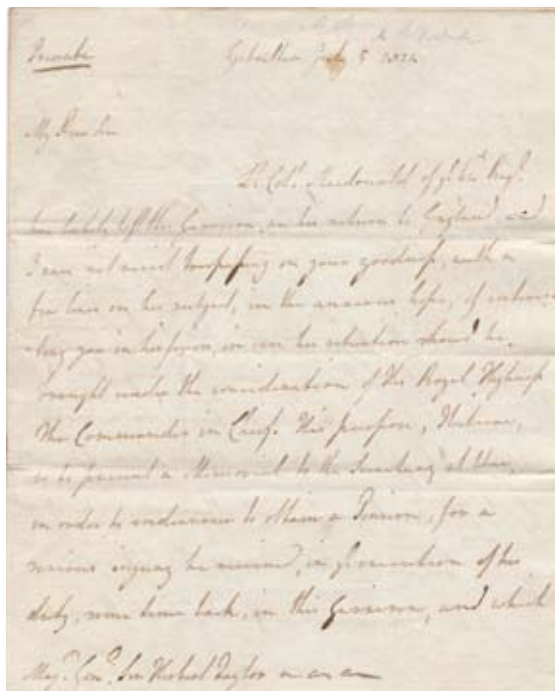 Private
Gibraltar July 5 1824
My Dear Sir
Lt. Col. Macdonald of the Regt.
has lately left this Garrison, on his return to England and
I can not resist trespassing on your goodness, with a
few lines on his subject, in the anxious hope, of interes
-ting you in his favor, in case his situation should be
brought under the consideration of His Royal Highness
The Commander in Chief. His purpose, I believe,
is to present a Memorial to the Secretary at War,
in order to endeavour to obtain a Pension, for a
serious injury he received, in the execution of his
duty, some time back, in this Garrison, and which
Maj. Genl. Sir Herbert Taylor